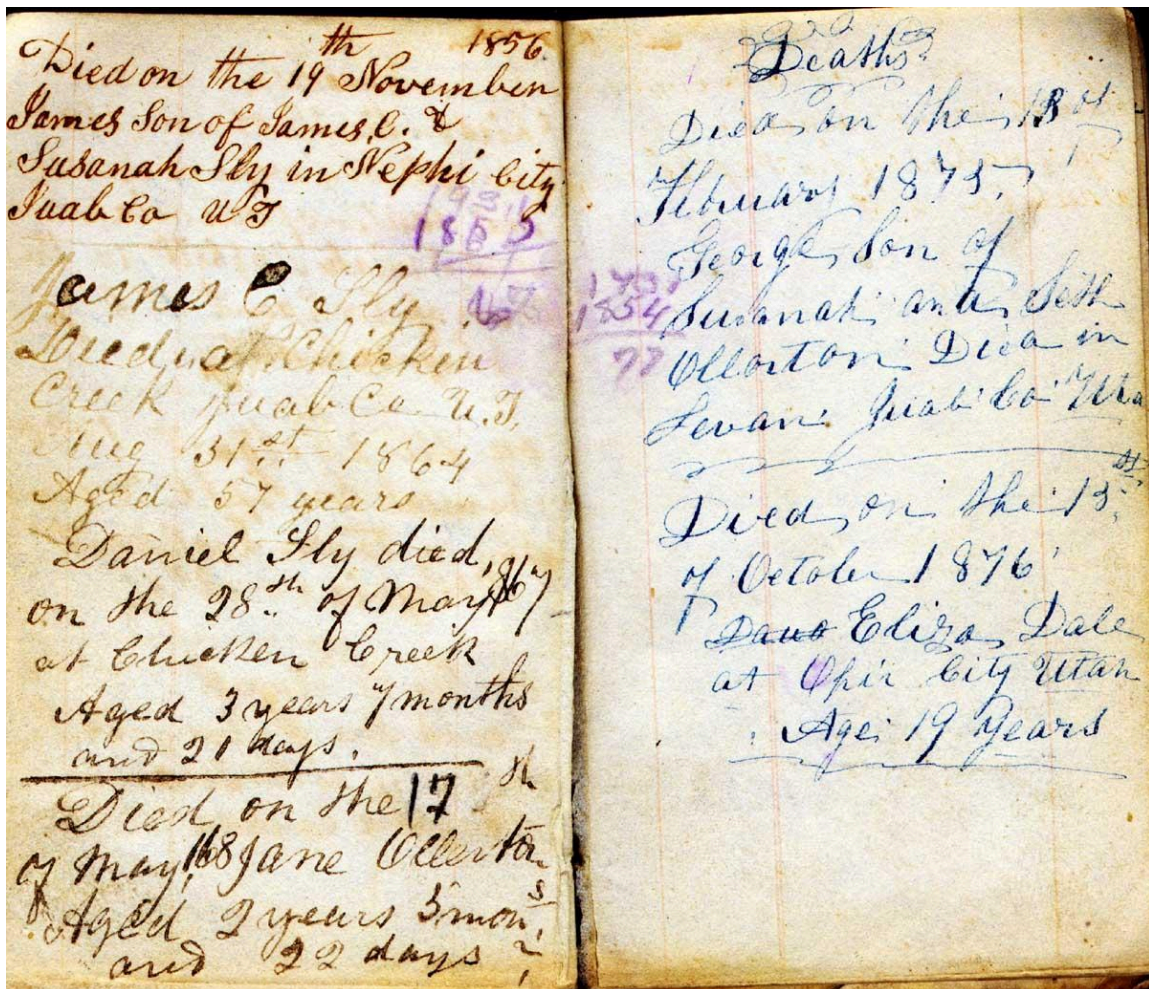 1856
Died on the 19th November
James Son of James C. &
Susanah Sly in Nephi City
Juab Co U T
1855
James C Sly
Died at Chicken
Creek Juab Co U.T.
Aug 31st 1864
Aged 57 years
Daniel Sly died,
on the 28th of May 1867
at Chicken Creek
Aged 3 years 7 months
and 21 days.
Died on the 17th
of May, 168 Jane Ollerton
Aged 2 years 5 mons,
and 22 days
Deaths
Died on the 18 of
February 1875.
George Son of
Susanah and Seth
Ollorton Died in
Levan Juab Co Uta
1854
77
Died on the 15
of October 1876
Eliza Dale
at Ophir City Utah
Age 19 Years